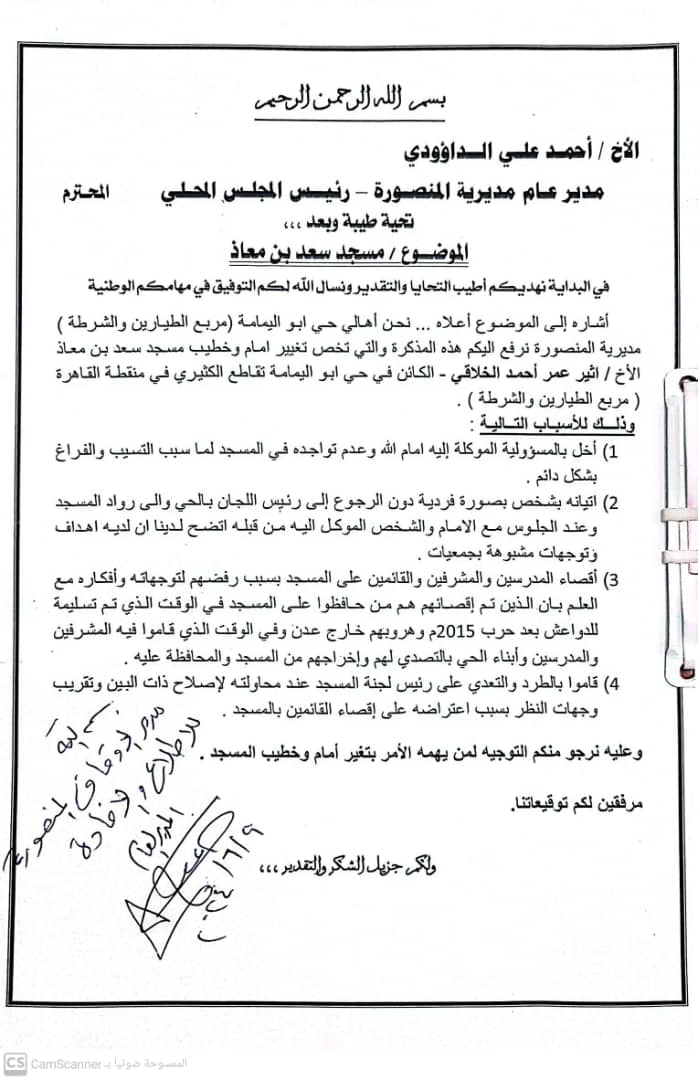 بسم الله الرحمن الرحيم
الأخ / أحمد علي الداؤودي
مدير عام مديرية المنصورة – رئيس المجلس المحلي المحترم
تحية طيبة وبعد ،،،
الموضوع / مسجد سعد بن معاذ
في البداية نهديكم أطيب التحايا والتقدير ونسال الله لكم التوفيق في مهامكم الوطنية
أشاره إلى الموضوع أعلاه ... نحن أهالي حي ابو اليمامة (مربع الطيارين والشرطة )
مديرية المنصورة نرفع اليكم هذه المذكرة والتي تخص تغيير امام وخطيب مسجد سعد بن معاذ
الأخ / اثير عمر أحمد الخلاقي - الكائن في حي ابو اليمامة تقاطع الكثيري في منقطة القاهرة
( مربع الطيارين والشرطة ) .
وذلك للأسباب التالية :
1) أخل بالمسؤولية الموكلة إليه امام الله وعدم تواجده في المسجد لما سبب التسيب والفراغ
بشكل دائم .
2) اتيانه بشخص بصورة فردية دون الرجوع إلى رئيس اللجان بالحي والى رواد المسجد
وعند الجلوس مع الامام والشخص الموكل اليه من قبله اتضح لدينا ان لديه اهداف
وتوجهات مشبوهة بجمعيات .
3) أقصاء المدرسين والمشرفين والقائمين على المسجد بسبب رفضهم لتوجهاته وأفكاره مع
العلم بان الذين تم إقصائهم هم من حافظوا على المسجد في الوقت الذي تم تسليمة
للدواعش بعد حرب 2015م وهروبهم خارج عدن وفي الوقت الذي قاموا فيه المشرفين
والمدرسين وأبناء الحي بالتصدي لهم وإخراجهم من المسجد والمحافظة عليه .
4) قاموا بالطرد والتعدي على رئيس لجنة المسجد عند محاولته لإصلاح ذات البين وتقريب
وجهات النظر بسبب اعتراضه على إقصاء القائمين بالمسجد .
وعليه نرجو منكم التوجيه لمن يهمه الأمر بتغير أمام وخطيب المسجد .
مرفقين لكم توقيعاتنا.
ولكم جزيل الشكر والتقدير ،،،
مدير الاوقاف المنصورة
للاطلاع والافادة
المدير العام
CS CamScanner الممسوحة ضوئيا بـ